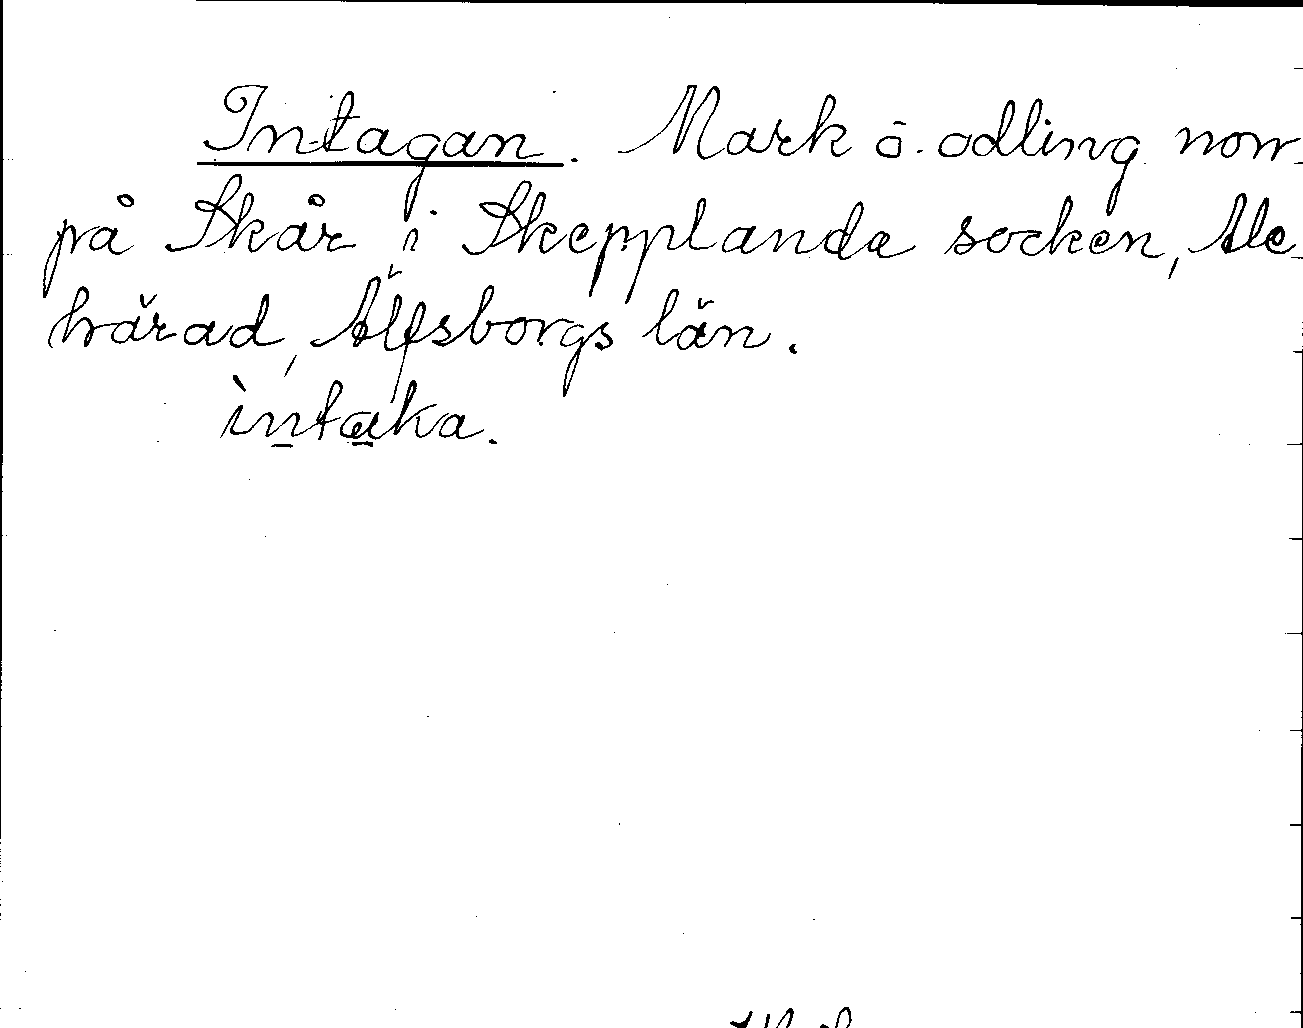 Intagan. Mark o. odling norr
på Skår i Skepplanda socken, Ale
härad, Älfsborgs län.
ìntaka.